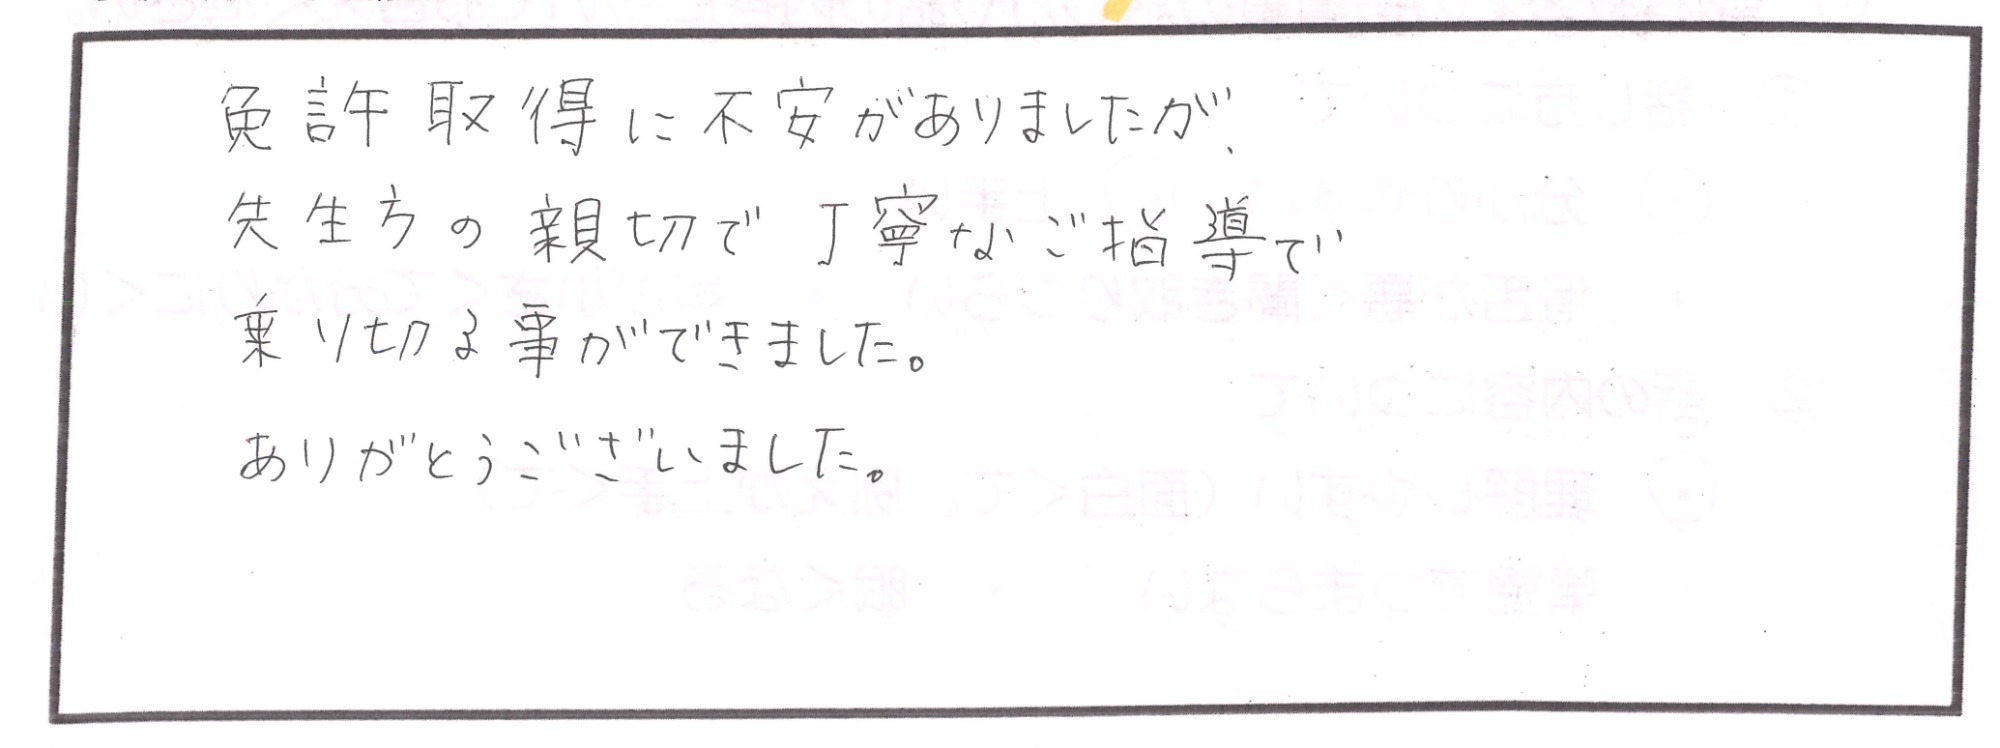 免許取得に不安がありましたが、
先生方の親切で丁寧なご指導で
乗り切る事ができました。
ありがとうございました。